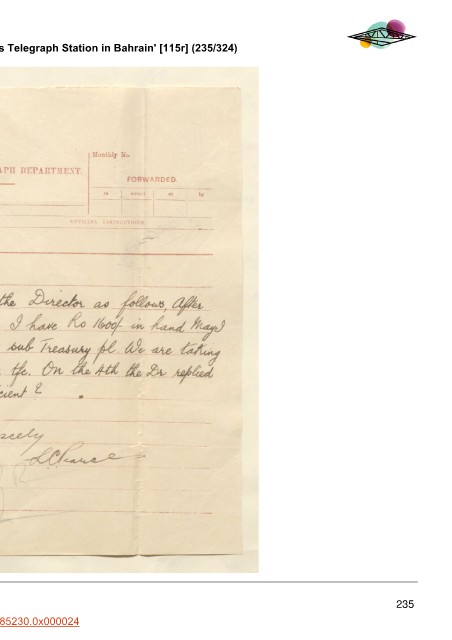 s Telegraph Station in Bahrain' [115r] (235/324)
Monthly No.
APH DEPARTMENT.
FORWARDED.
to
at
by
OFFICIAL INSTRUCTIONS
the Director as follows, After
I have Rs 1600/- in hand May I
sub Treasury pl. We are taking
tfc. On the 4th the Dr replied
cient?
scely
235
85230.0x000024